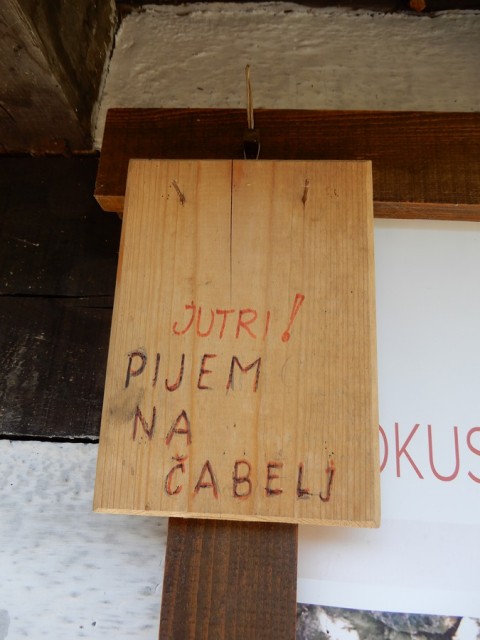 JUTRI!
PIJEM
NA
ČABELJ
OKUS